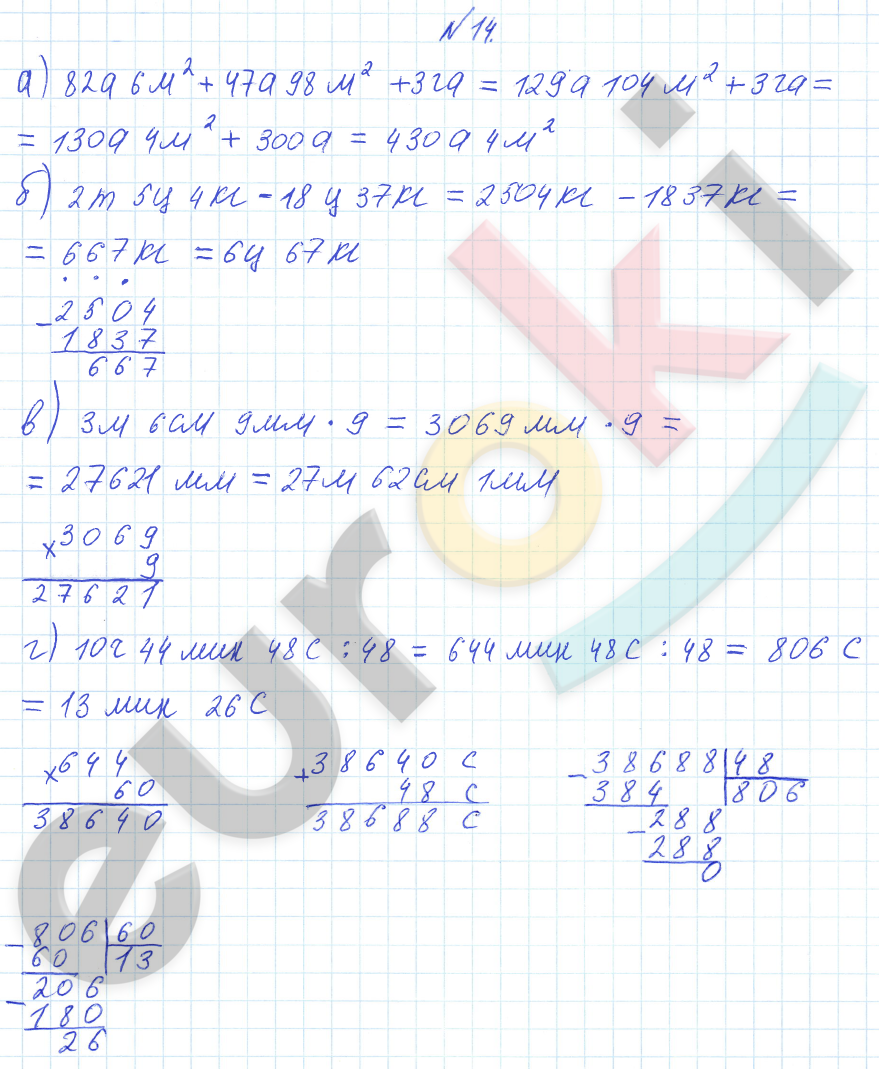 № 14.
а) 82а 6м² + 47а 98м² + 3га = 129а 104м² + 3га =
= 130а 4м² + 300а = 430а 4м²
б) 2т 5ц 4кг - 18ц 37кг = 2504кг - 1837кг =
= 667кг = 6ц 67кг
- 2504
1837
667
в) 3м 6см 9мм · 9 = 3069мм · 9 =
= 27621 мм = 27м 62см 1мм
× 3069
9
27621
г) 10ч 44мин 48с : 48 = 644мин 48с : 48 = 806 с
= 13 мин 26с
× 644
60
38640
+ 38640 с
48 с
38688 с
- 38688 | 48
384 | 806
- 288
288
0
- 806 | 60
60 | 13
- 206
180
26
euroki